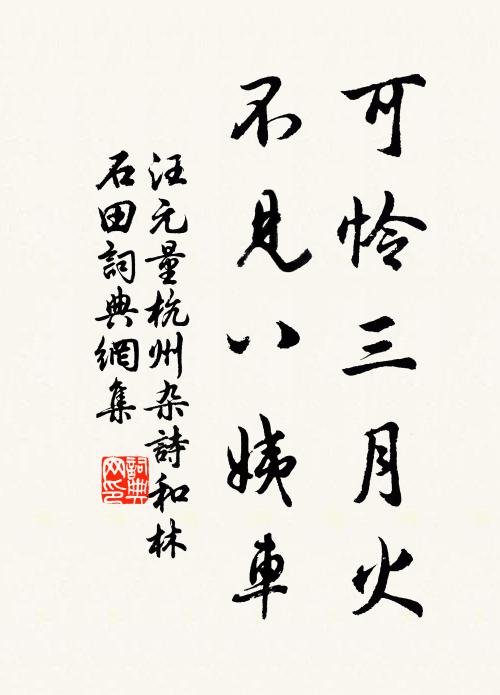 可怜三月火
不見八姨車
汪元量杭州杂詩和林
石田詞典網集
詞典
网印